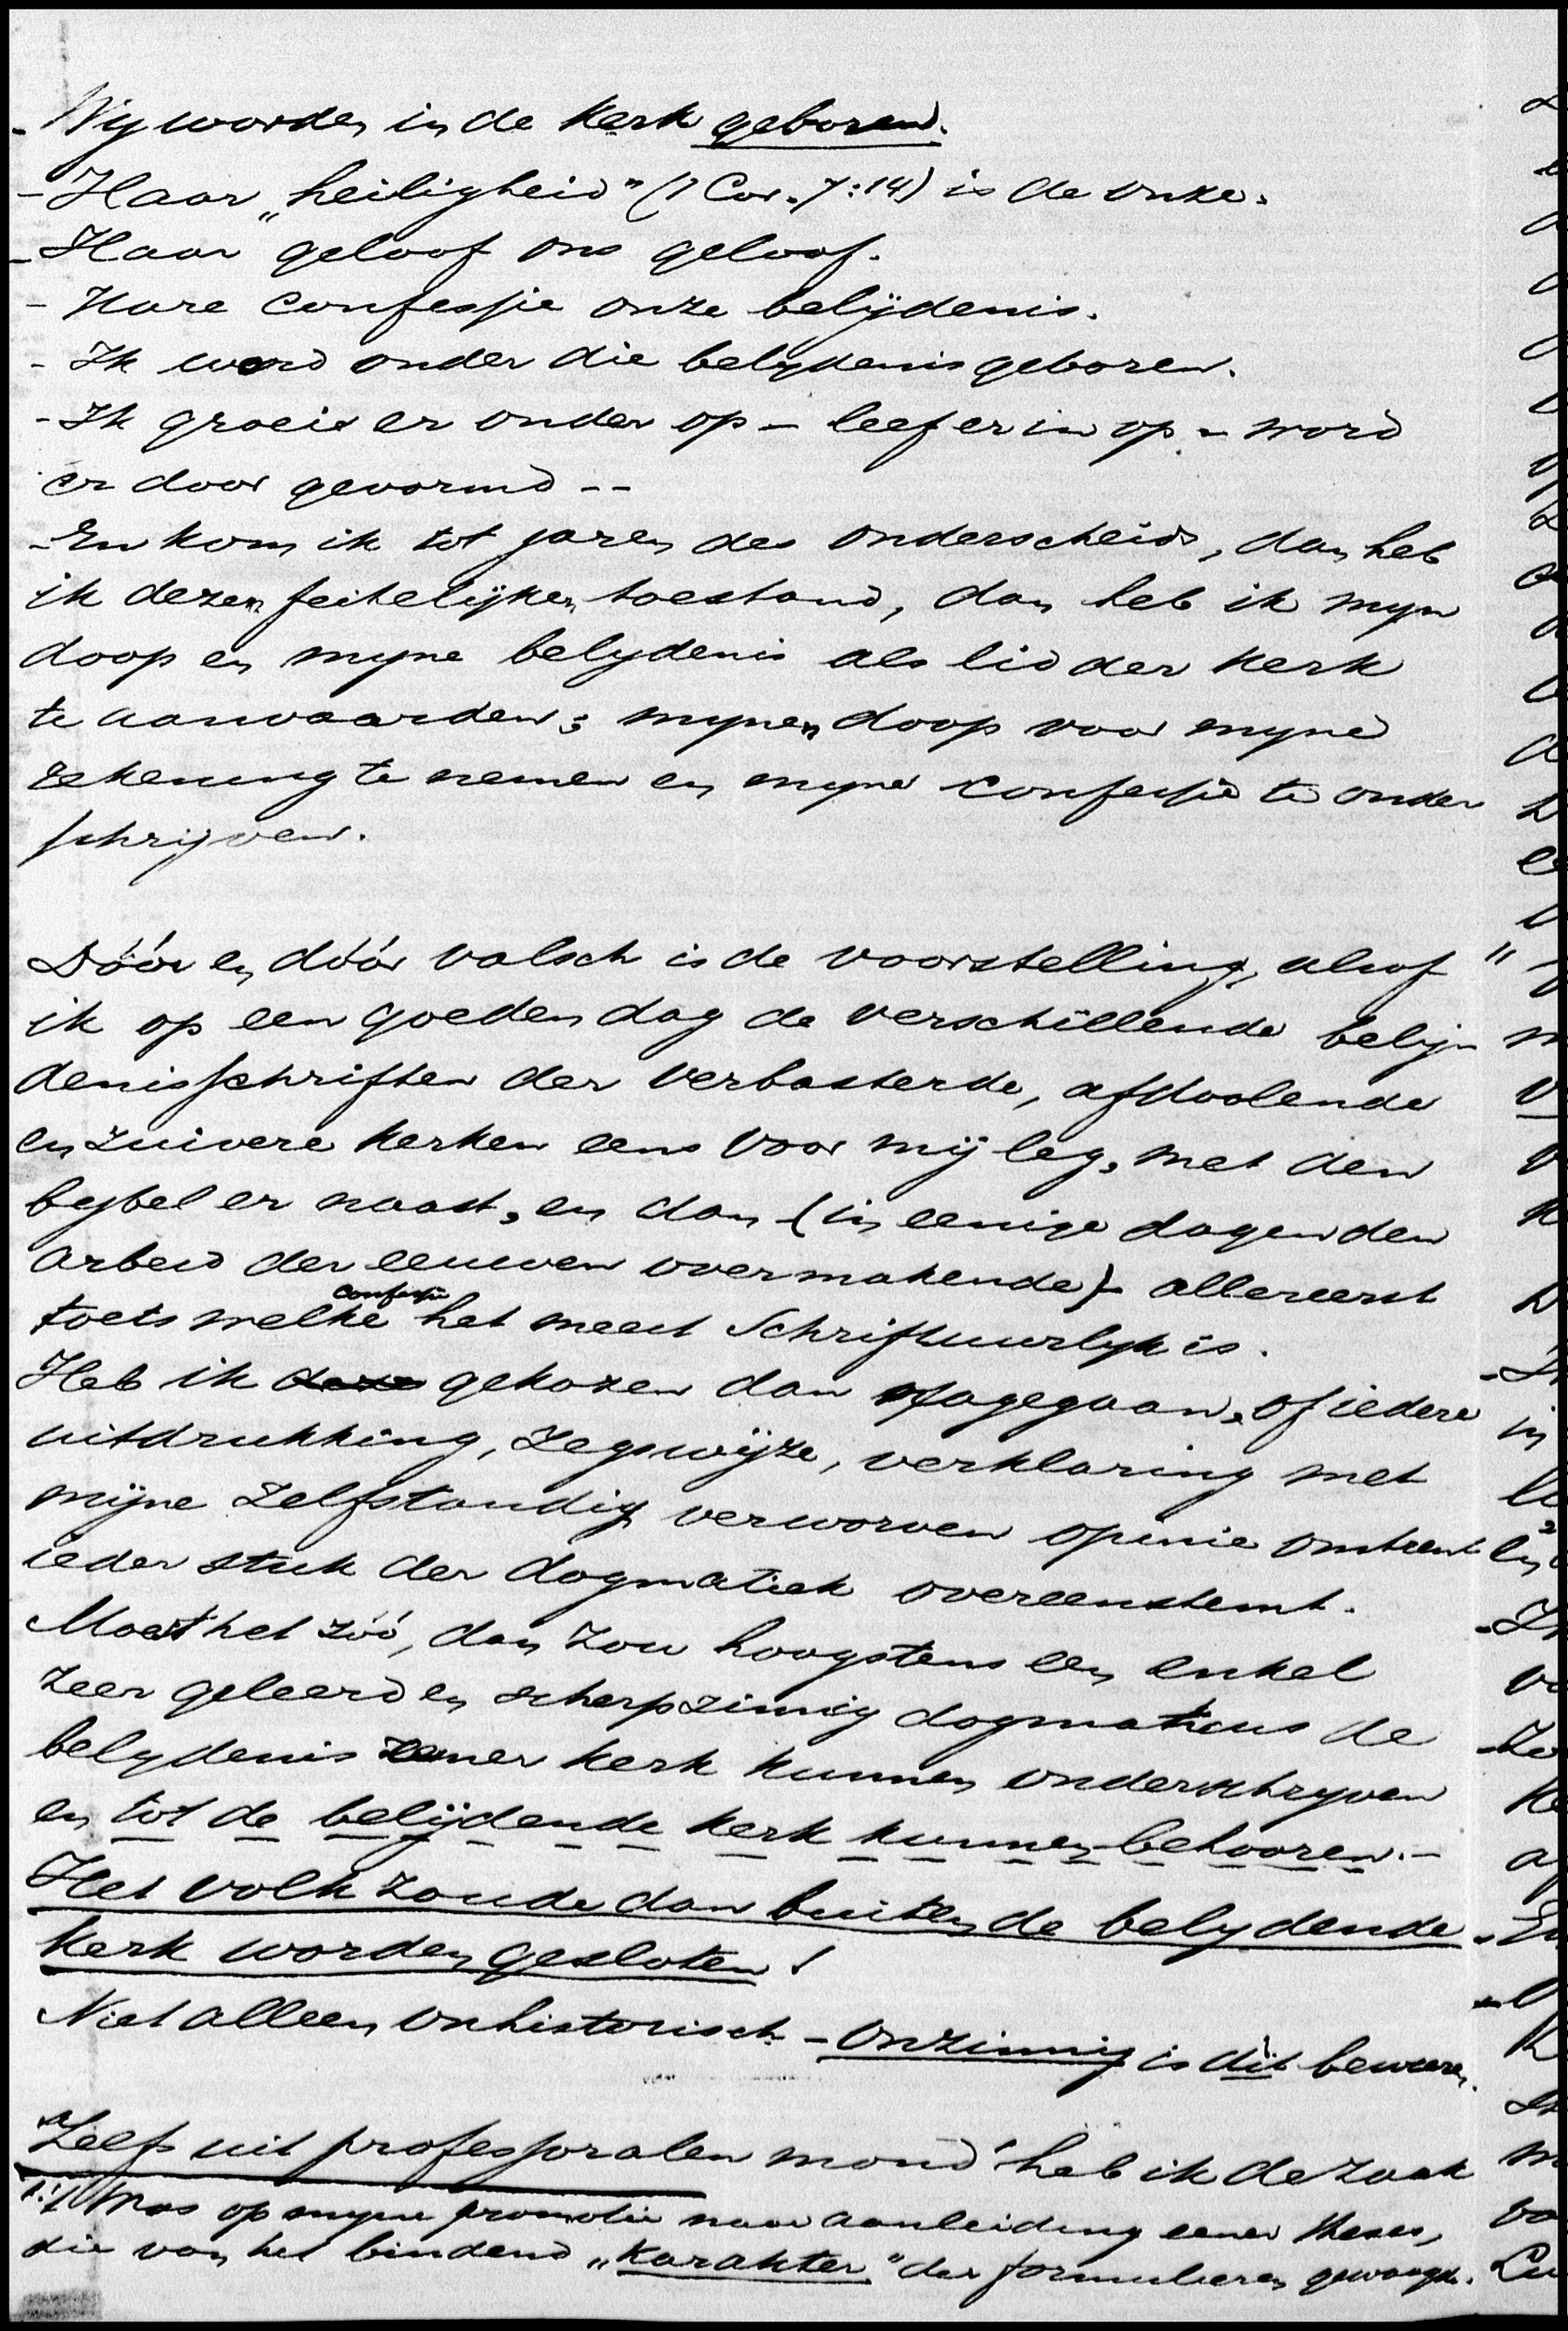 - Wij worden in de Kerk geboren.
- Haar „heiligheid" (1 Cor. 7:14) is de onze.
- Haar geloof ons geloof.
- Hare confessie onze belijdenis.
- Ik word onder die belydenis geboren.
- Ik groeie er onder op - leef er in op - word
er door gevormd --
- En kom ik tot jaren des onderscheids, dan heb
ik dezen feitelijken toestand, dan heb ik myn
doop en myne belydenis als lid der Kerk
te aanvaarden; mynen doop voor myne
rekening te nemen en myne confessie te onder
schrijven.
Dóór en dóór valsch is de voorstelling, alsof
ik op een goeden dag de verschillende belij-
denisschriften der verbasterde, afdoolende
en zuivere kerken eens voor mij leg, met den
bybel er naast, en dan (in eenige dagen den
arbeid der eeuwen overmakende) - allereerst
confessie
toets welke het meest Schriftuurlyk is.
Heb ik deze gekozen dan nagegaan, of iedere
uitdrukking, zegswijze, verklaring met
mijne zelfstandig verworven opinie omtrent
ieder stuk der dogmatiek overeenstemt.
Moest het zóó, dan zou hoogstens een enkel
zeer geleerd en scherpzinnig dogmaticus de
belydenis eener kerk kunnen onderschryven
en tot de belijdende kerk kunnen behooren. -
Het volk zoude dan buiten de belydende
Kerk worden gesloten!
Niet alleen onhistorisch - onzinnig is dit beweren.
Zelfs uit professoralen mond heb ik de zaak
1.) Was op myne promotie naar aanleiding eener theses,
die van het bindend „Karakter" der formulieren gewaagde.